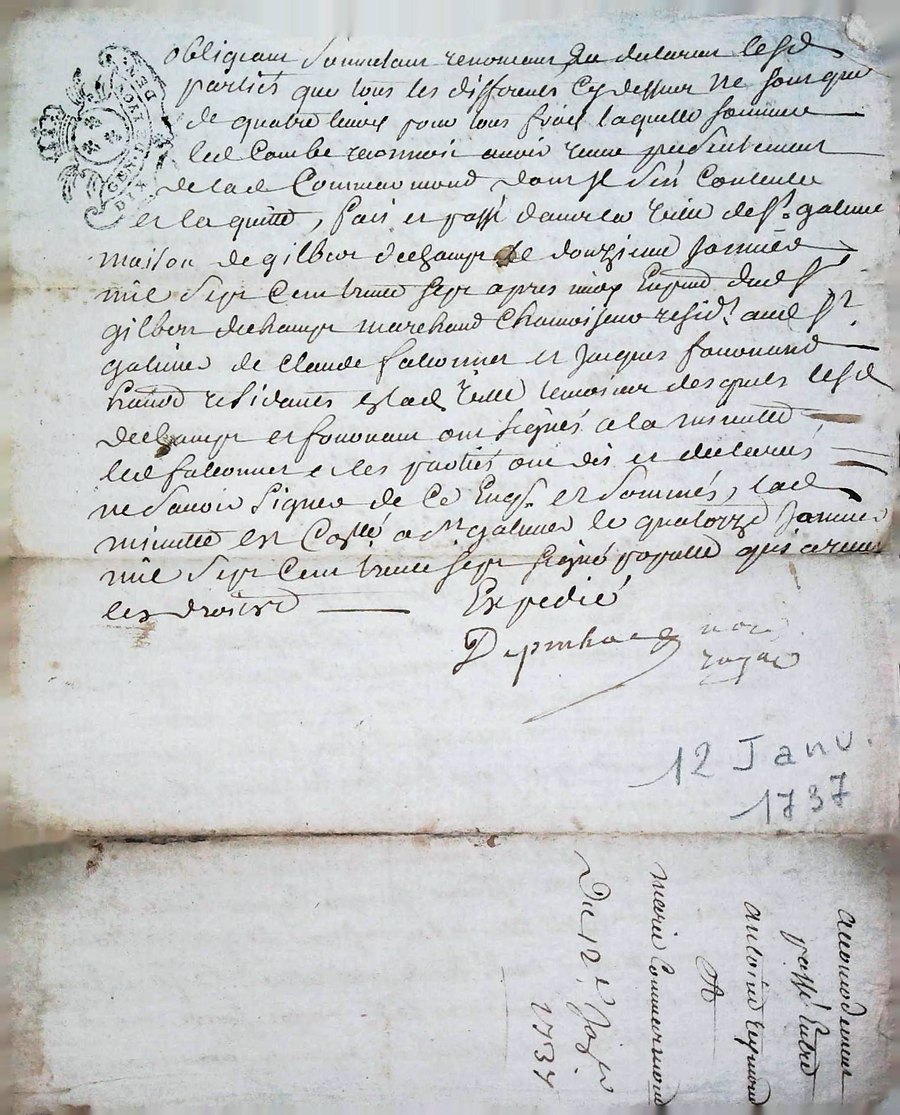 GEN. DE LYON
DIX DEN.
obligeant soumettant renonceant Et declarent lesd
parties que tous les differents Cy dessus ne sont que
de quatre livres pour tous frais laquelle somme
led Combe reconnoit avoir receu presentement
de lad Commarmond dont Il s'en Contente
et la quitte, fait et passé dans la ville de St. galmier
maison de gilbert dechamps le douzieme Janvier
mil sept Cent trente sept apres midy En pnce dud Sr
gilbert dechamps marchand Chamoiseur residt. aud St.
galmier de Claude falconnet et Jacques
residants en lad ville temoins lesquels lesd
dechamps et ont signés a la minutte
led falconnet & les parties ont dit et declarés
ne savoir signer de Ce Enqs et sommés, lad
minutte est Collé a St galmier le quatorze Janvier
mil sept Cent trente sept signé qui a receu
les droits
Expedié
not
royal
12 Janv.
1737
accomodement
passé Entre
antoine
A
marie Commarmond
Du 12e Janer
1737